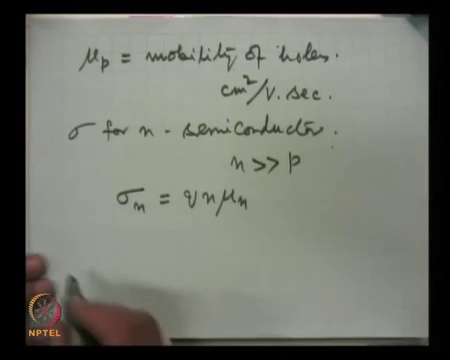 μp = mobility of holes.
cm²/V.sec.
σ for n - semiconductor.
n >> p
σn = q n μn
NPTEL